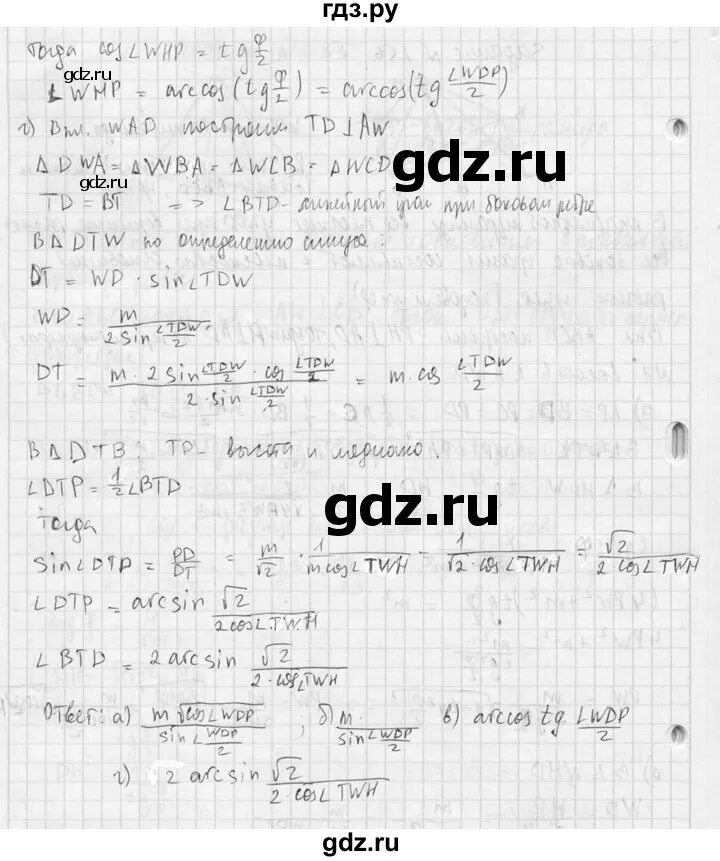 гдз.ру
Тогда cos∠WHP = tg φ/2
∠WHP = arccos(tg φ/2) = arccos(tg ∠WDP/2)
г) В пл. WAD построим TD⊥AW
ΔDWA = ΔWBA = ΔWCB = ΔWCD
TD = BT => ∠BTD - линейный угол при боковом ребре
В ΔDTW по определению синуса:
DT = WD · sin∠TDW
WD = m / (2 sin ∠TDW/2)
DT = (m · 2 sin ∠TDW/2 · cos ∠TDW/2) / (2 · sin ∠TDW/2) = m · cos ∠TDW/2
В ΔDTB: TP - высота и медиана.
∠DTP = 1/2 ∠BTD
Тогда
sin∠DTP = PD/DT = m/√2 · 1/(m cos∠TWH) = 1/(√2 · cos∠TWH) = √2/(2 cos∠TWH)
∠DTP = arcsin √2/(2cos∠TWH)
∠BTD = 2 arcsin √2/(2 · cos∠TWH)
Ответ: а) m√cos∠WDP / sin ∠WDP/2 ; б) m / sin ∠WDP/2 в) arccos tg ∠WDP/2
г) 2 arcsin √2/(2 · cos∠TWH)
gdz.ru
gdz.ru
gdz.ru
gdz.ru
gdz.ru
gdz.ru
gdz.ru
gdz.ru